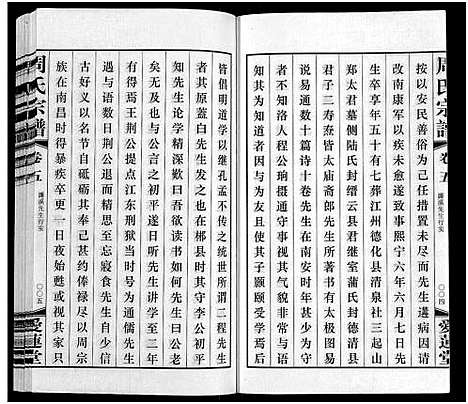 周氏宗譜
卷五
濂溪先生行实
〇〇四
愛蓮堂
按以安民善俗为己任措置未尽而先生遽病因请
改南康军以疾未愈遂致事熙宁六年六月七日先
生卒享年五十有七葬江州德化县清泉社三起山
郑太君墓侧陆氏封缙云县君继室蒲氏封德清县
君二子寿焘皆太庙斋郎先生博学力行著有太极图易
说易通数十篇诗十卷先生在南安时年甚少不为守所
知不知洛人程公珦摄通守事视其气貌非常人与语
知其为知道者因与为友且使其子颐颢受学焉
皆倡明道学以继孔孟不传之统世所谓二程先生
矣其原盖自先生发之也在郴县时其守李公初平
知先生论学精深叹曰吾欲读书如何先生曰公老
矣无及也与公言之初平遂日听先生语至二年
有得焉王荆公提点江东刑狱当时号为通儒先生
遇与语数日荆公退而精思至忘寝食先生自少信
古好义砥砺其奉己甚约俸禄尽以周宗
族在南昌时得暴疾卒更一日夜始甦或视其家只
周氏宗譜
卷五
濂溪先生行实
〇〇五
愛蓮堂